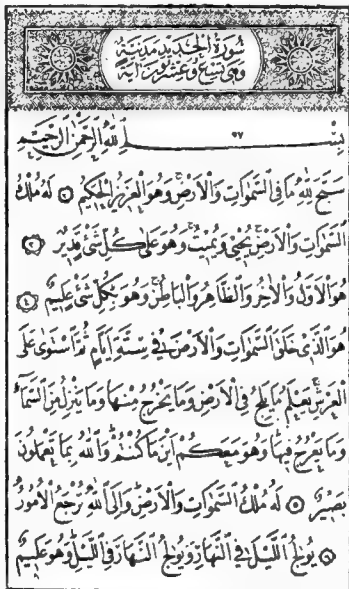 سُورَةُ الْحَدِيدِ مَدَنِيَّةٌ
وَهِيَ تِسْعٌ وَعِشْرُونَ آيَةً
٥٧
بِسْمِ اللّٰهِ الرَّحْمٰنِ الرَّحِيمِ
سَبَّحَ لِلّٰهِ مَا فِي السَّمٰوَاتِ وَالْاَرْضِ وَهُوَ الْعَزِيزُ الْحَكِيمُ ۝ لَهُ مُلْكُ
السَّمٰوَاتِ وَالْاَرْضِ يُحْيِي وَيُمِيتُ وَهُوَ عَلٰى كُلِّ شَيْءٍ قَدِيرٌ ۝
هُوَ الْاَوَّلُ وَالْاٰخِرُ وَالظَّاهِرُ وَالْبَاطِنُ وَهُوَ بِكُلِّ شَيْءٍ عَلِيمٌ ۝
هُوَ الَّذِي خَلَقَ السَّمٰوَاتِ وَالْاَرْضَ فِي سِتَّةِ اَيَّامٍ ثُمَّ اسْتَوٰى عَلَى
الْعَرْشِ يَعْلَمُ مَا يَلِجُ فِي الْاَرْضِ وَمَا يَخْرُجُ مِنْهَا وَمَا يَنْزِلُ مِنَ السَّمَاءِ
وَمَا يَعْرُجُ فِيهَا وَهُوَ مَعَكُمْ اَيْنَ مَا كُنْتُمْ وَاللّٰهُ بِمَا تَعْمَلُونَ
بَصِيرٌ ۝ لَهُ مُلْكُ السَّمٰوَاتِ وَالْاَرْضِ وَاِلَى اللّٰهِ تُرْجَعُ الْاُمُورُ
۝ يُولِجُ اللَّيْلَ فِي النَّهَارِ وَيُولِجُ النَّهَارَ فِي اللَّيْلِ وَهُوَ عَلِيمٌ